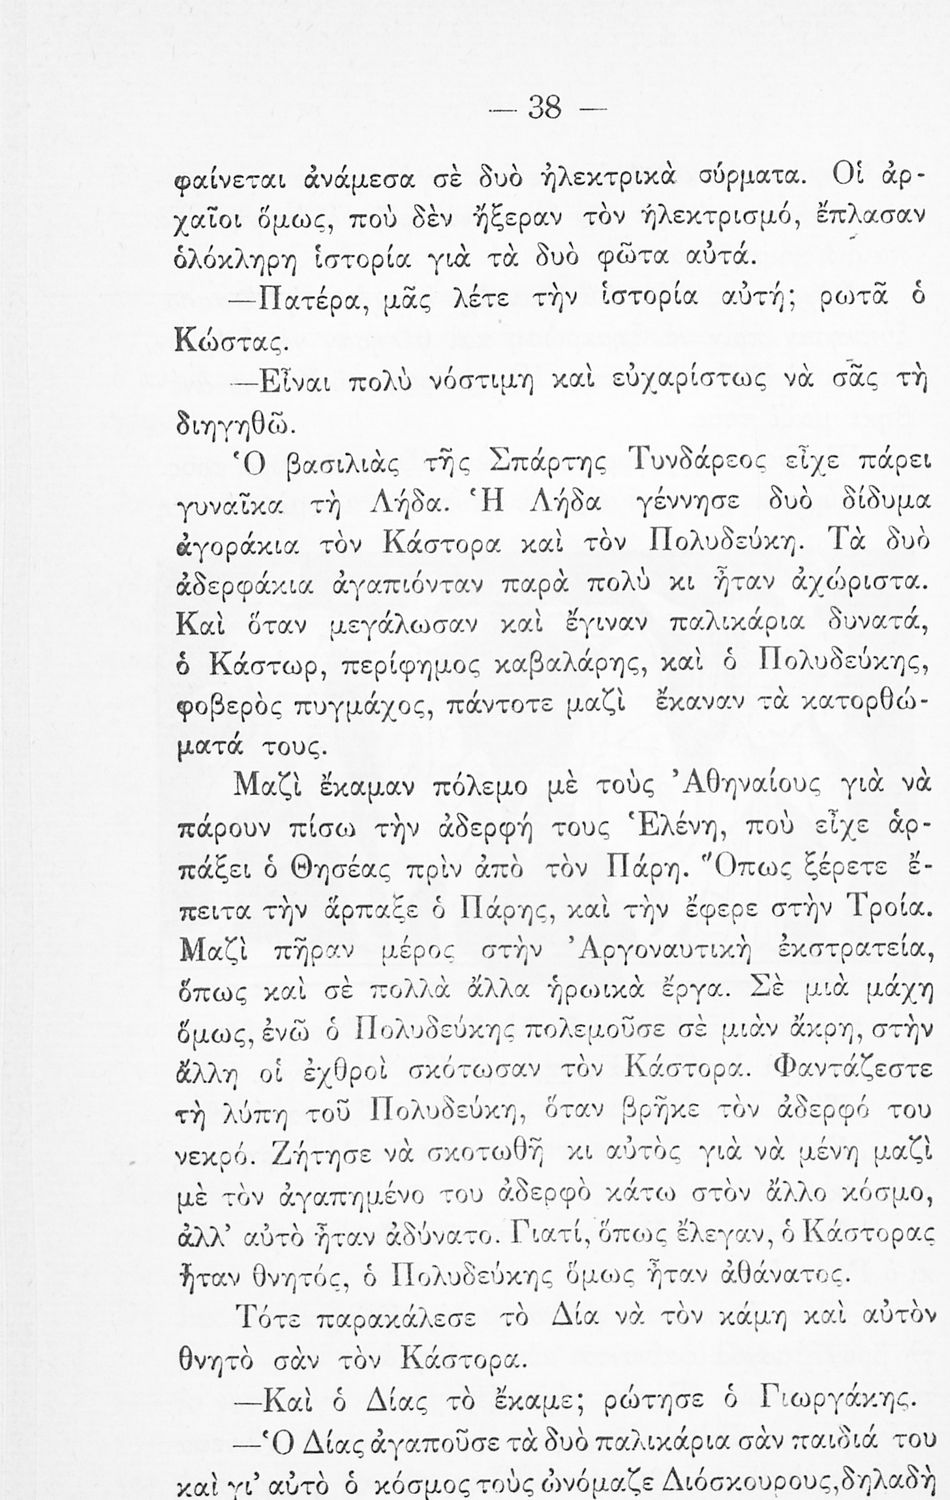 — 38 —
φαίνεται ἀνάμεσα σὲ δυὸ ἠλεκτρικὰ σύρματα. Οἱ ἀρ-
χαῖοι ὅμως, ποὺ δὲν ἤξεραν τὸν ἠλεκτρισμό, ἔπλασαν
ὁλόκληρη ἱστορία γιὰ τὰ δυὸ φῶτα αὐτά.
—Πατέρα, μᾶς λέτε τὴν ἱστορία αὐτή; ρωτᾶ ὁ
Κώστας.
—Εἶναι πολὺ νόστιμη καὶ εὐχαρίστως νὰ σᾶς τὴ
διηγηθῶ.
Ὁ βασιλιὰς τῆς Σπάρτης Τυνδάρεος εἶχε πάρει
γυναῖκα τὴ Λήδα. Ἡ Λήδα γέννησε δυὸ δίδυμα
ἀγοράκια τὸν Κάστορα καὶ τὸν Πολυδεύκη. Τὰ δυὸ
ἀδερφάκια ἀγαπιόνταν παρὰ πολὺ κι ἦταν ἀχώριστα.
Καὶ ὅταν μεγάλωσαν καὶ ἔγιναν παλικάρια δυνατά,
ὁ Κάστωρ, περίφημος καβαλάρης, καὶ ὁ Πολυδεύκης,
φοβερὸς πυγμάχος, πάντοτε μαζὶ ἔκαναν τὰ κατορθώ-
ματά τους.
Μαζὶ ἔκαμαν πόλεμο μὲ τοὺς Ἀθηναίους γιὰ νὰ
πάρουν πίσω τὴν ἀδερφή τους Ἑλένη, ποὺ εἶχε ἁρ-
πάξει ὁ Θησέας πρὶν ἀπὸ τὸν Πάρη. Ὅπως ξέρετε ἔ-
πειτα τὴν ἅρπαξε ὁ Πάρης, καὶ τὴν ἔφερε στὴν Τροία.
Μαζὶ πῆραν μέρος στὴν Ἀργοναυτικὴ ἐκστρατεία,
ὅπως καὶ σὲ πολλὰ ἄλλα ἡρωικὰ ἔργα. Σὲ μιὰ μάχη
ὅμως, ἐνῶ ὁ Πολυδεύκης πολεμοῦσε σὲ μιὰν ἄκρη, στὴν
ἄλλη οἱ ἐχθροὶ σκότωσαν τὸν Κάστορα. Φαντάζεστε
τὴ λύπη τοῦ Πολυδεύκη, ὅταν βρῆκε τὸν ἀδερφό του
νεκρό. Ζήτησε νὰ σκοτωθῆ κι αὐτὸς γιὰ νὰ μένη μαζὶ
μὲ τὸν ἀγαπημένο του ἀδερφὸ κάτω στὸν ἄλλο κόσμο,
ἀλλ' αὐτὸ ἦταν ἀδύνατο. Γιατί, ὅπως ἔλεγαν, ὁ Κάστορας
ἦταν θνητός, ὁ Πολυδεύκης ὅμως ἦταν ἀθάνατος.
Τότε παρακάλεσε τὸ Δία νὰ τὸν κάμη καὶ αὐτὸν
θνητὸ σὰν τὸν Κάστορα.
—Καὶ ὁ Δίας τὸ ἔκαμε; ρώτησε ὁ Γιωργάκης.
—Ὁ Δίας ἀγαποῦσε τὰ δυὸ παλικάρια σὰν παιδιά του
καὶ γι' αὐτὸ ὁ κόσμος τοὺς ὠνόμαζε Διόσκουρους, δηλαδὴ